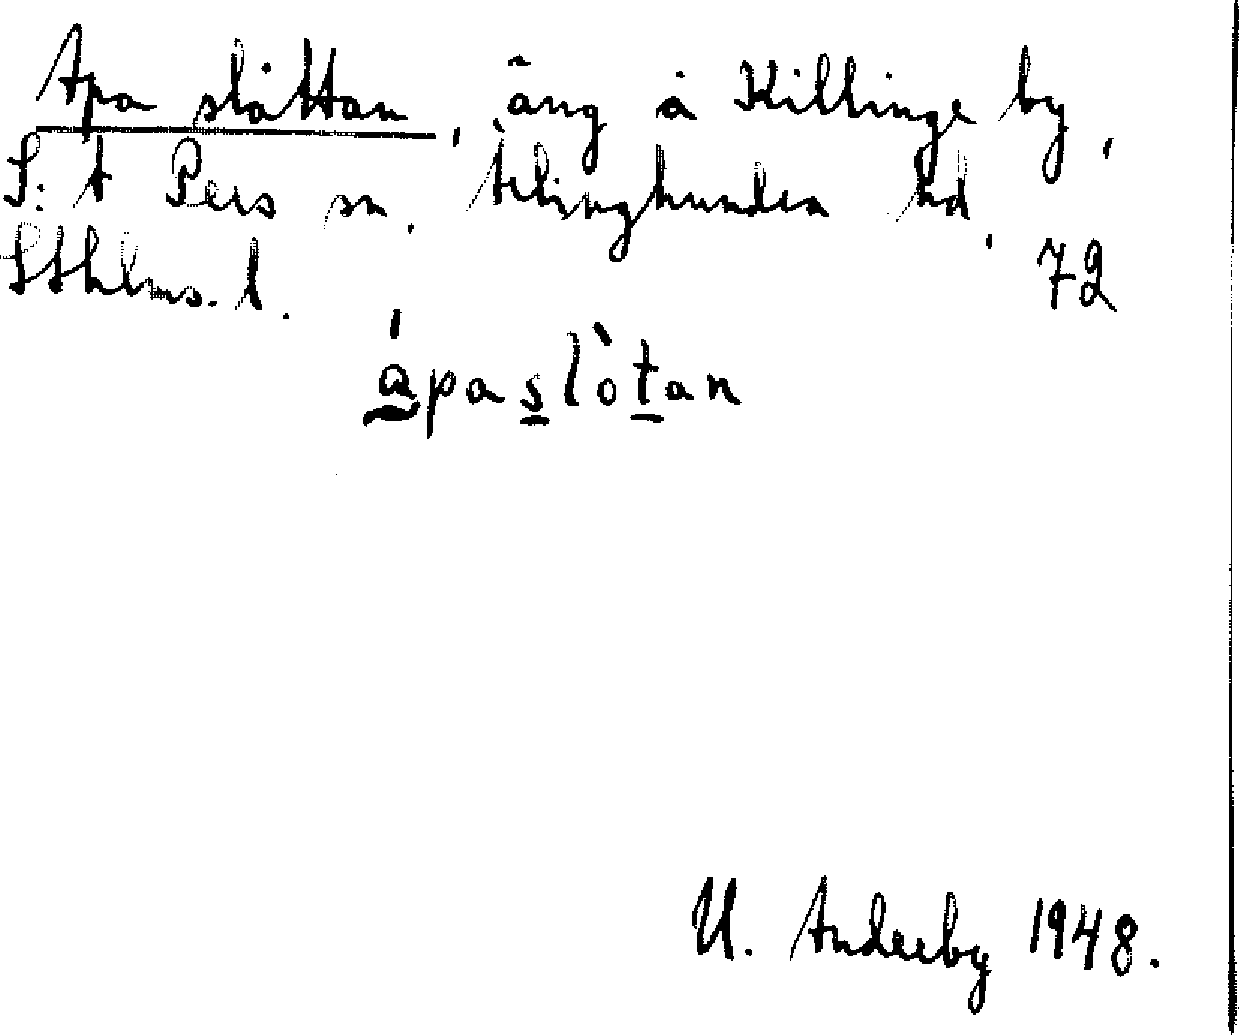 Apa slåttan, äng å Killinge by,
S:t Pers sn. Ärlinghundra hd,
Sthlms. l. 72
ápaslòtan
U. Anderby 1948.